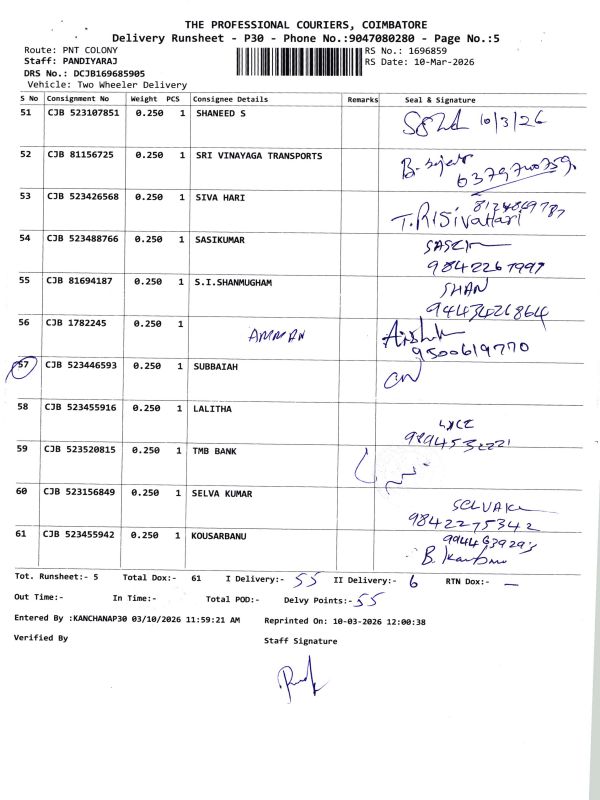 THE PROFESSIONAL COURIERS, COIMBATORE
Delivery Runsheet - P30 - Phone No.:9047080280 - Page No.:5
Route: PNT COLONY RS No.: 1696859
Staff: PANDIYARAJ RS Date: 10-Mar-2026
DRS No.: DCJB169685905
Vehicle: Two Wheeler Delivery
S No Consignment No Weight PCS Consignee Details Remarks Seal & Signature
51 CJB 523107851 0.250 1 SHANEED S 10/3/26
52 CJB 81156725 0.250 1 SRI VINAYAGA TRANSPORTS
53 CJB 523426568 0.250 1 SIVA HARI
T.RISivaHari
54 CJB 523488766 0.250 1 SASIKUMAR
9842267997
55 CJB 81694187 0.250 1 S.I.SHANMUGHAM SHAN
56 CJB 1782245 0.250 1 AMMAN
9500619770
57 CJB 523446593 0.250 1 SUBBAIAH
58 CJB 523455916 0.250 1 LALITHA
59 CJB 523520815 0.250 1 TMB BANK
60 CJB 523156849 0.250 1 SELVA KUMAR
9842275342
61 CJB 523455942 0.250 1 KOUSARBANU
Tot. Runsheet:- 5 Total Dox:- 61 I Delivery:- 55 II Delivery:- 6 RTN Dox:- —
Out Time:- In Time:- Total POD:- Delvy Points:- 55
Entered By :KANCHANAP30 03/10/2026 11:59:21 AM Reprinted On: 10-03-2026 12:00:38
Verified By Staff Signature